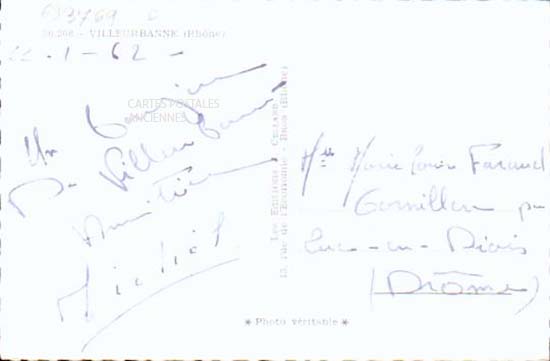 633769
26.268 - VILLEURBANNE (Rhône)
22-1-62-
CARTES POSTALES
ANCIENNES
Un bonjour
De Villeurbanne
Amitiés
Michel
Les Editions CELLARD
BRON (Rhône)
Mlle Marie Louise Faraud
Cornillon par
Luc-en-Diois
(Drôme)
* Photo véritable *